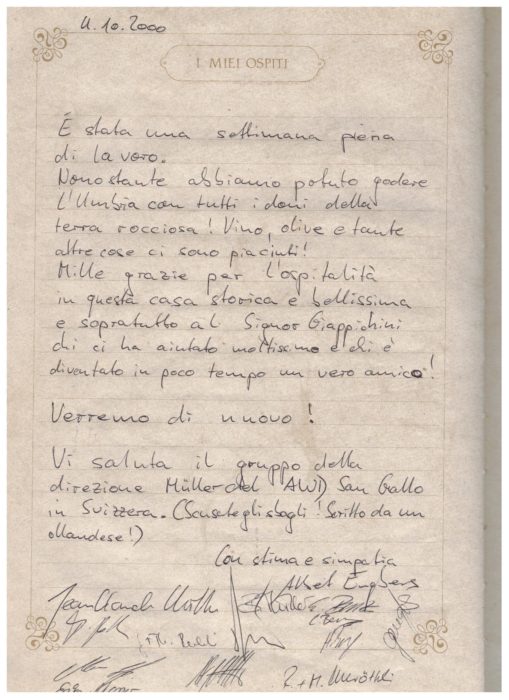 11.10.2000
I MIEI OSPITI
É stata una settimana piena
di lavoro.
Nonostante abbiamo potuto godere
l'Umbria con tutti i doni della
terra rocciosa! Vino, olive e tante
altre cose ci sono piaciuti!
Mille grazie per l'ospitalità
in questa casa storica e bellissima
e sopratutto al Signor Giappichini
chi ci ha aiutato moltissimo e di è
diventato in poco tempo un vero amico!
Verremo di nuovo!
Vi saluta il gruppo della
direzione Müller del AWD San Gallo
in Svizzera. (Scusate gli sbagli! Scritto da un
ollandese!)
Con stima e simpatia
Albert Engbers